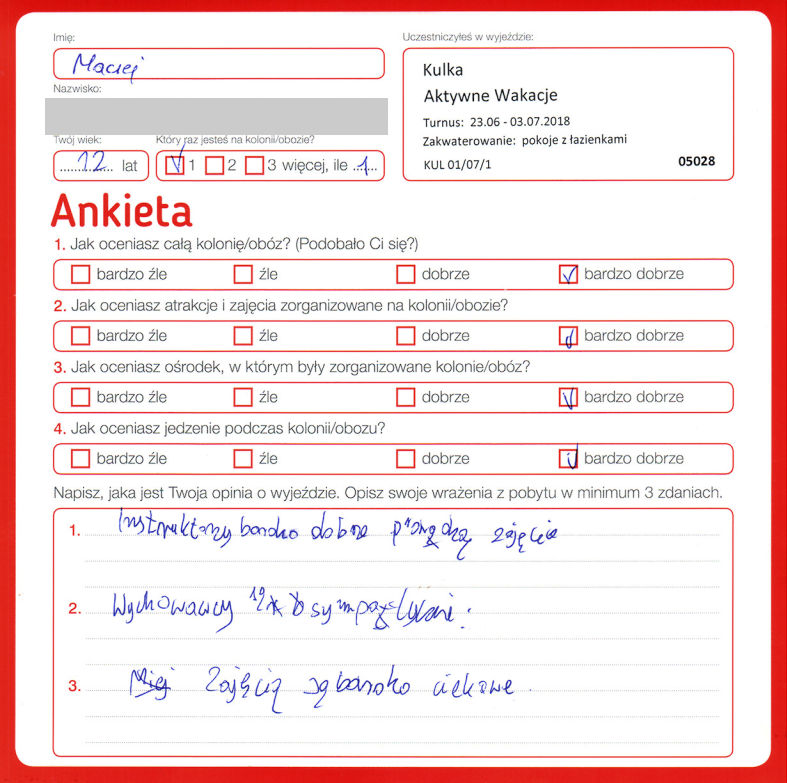 Imię:
Maciej
Nazwisko:
Twój wiek:
12 lat
Który raz jesteś na kolonii/obozie?
1 2 3 więcej, ile 1
Uczestniczyłeś w wyjeździe:
Kulka
Aktywne Wakacje
Turnus: 23.06 - 03.07.2018
Zakwaterowanie: pokoje z łazienkami
KUL 01/07/1 05028
Ankieta
1. Jak oceniasz całą kolonię/obóz? (Podobało Ci się?)
bardzo źle źle dobrze bardzo dobrze
2. Jak oceniasz atrakcje i zajęcia zorganizowane na kolonii/obozie?
bardzo źle źle dobrze bardzo dobrze
3. Jak oceniasz ośrodek, w którym były zorganizowane kolonie/obóz?
bardzo źle źle dobrze bardzo dobrze
4. Jak oceniasz jedzenie podczas kolonii/obozu?
bardzo źle źle dobrze bardzo dobrze
Napisz, jaka jest Twoja opinia o wyjeździe. Opisz swoje wrażenia z pobytu w minimum 3 zdaniach.
1. Instruktorzy bardzo dobrze prowadzą zajęcia
2. Wychowawcy
3. Zajęcia są bardzo ciekawe.